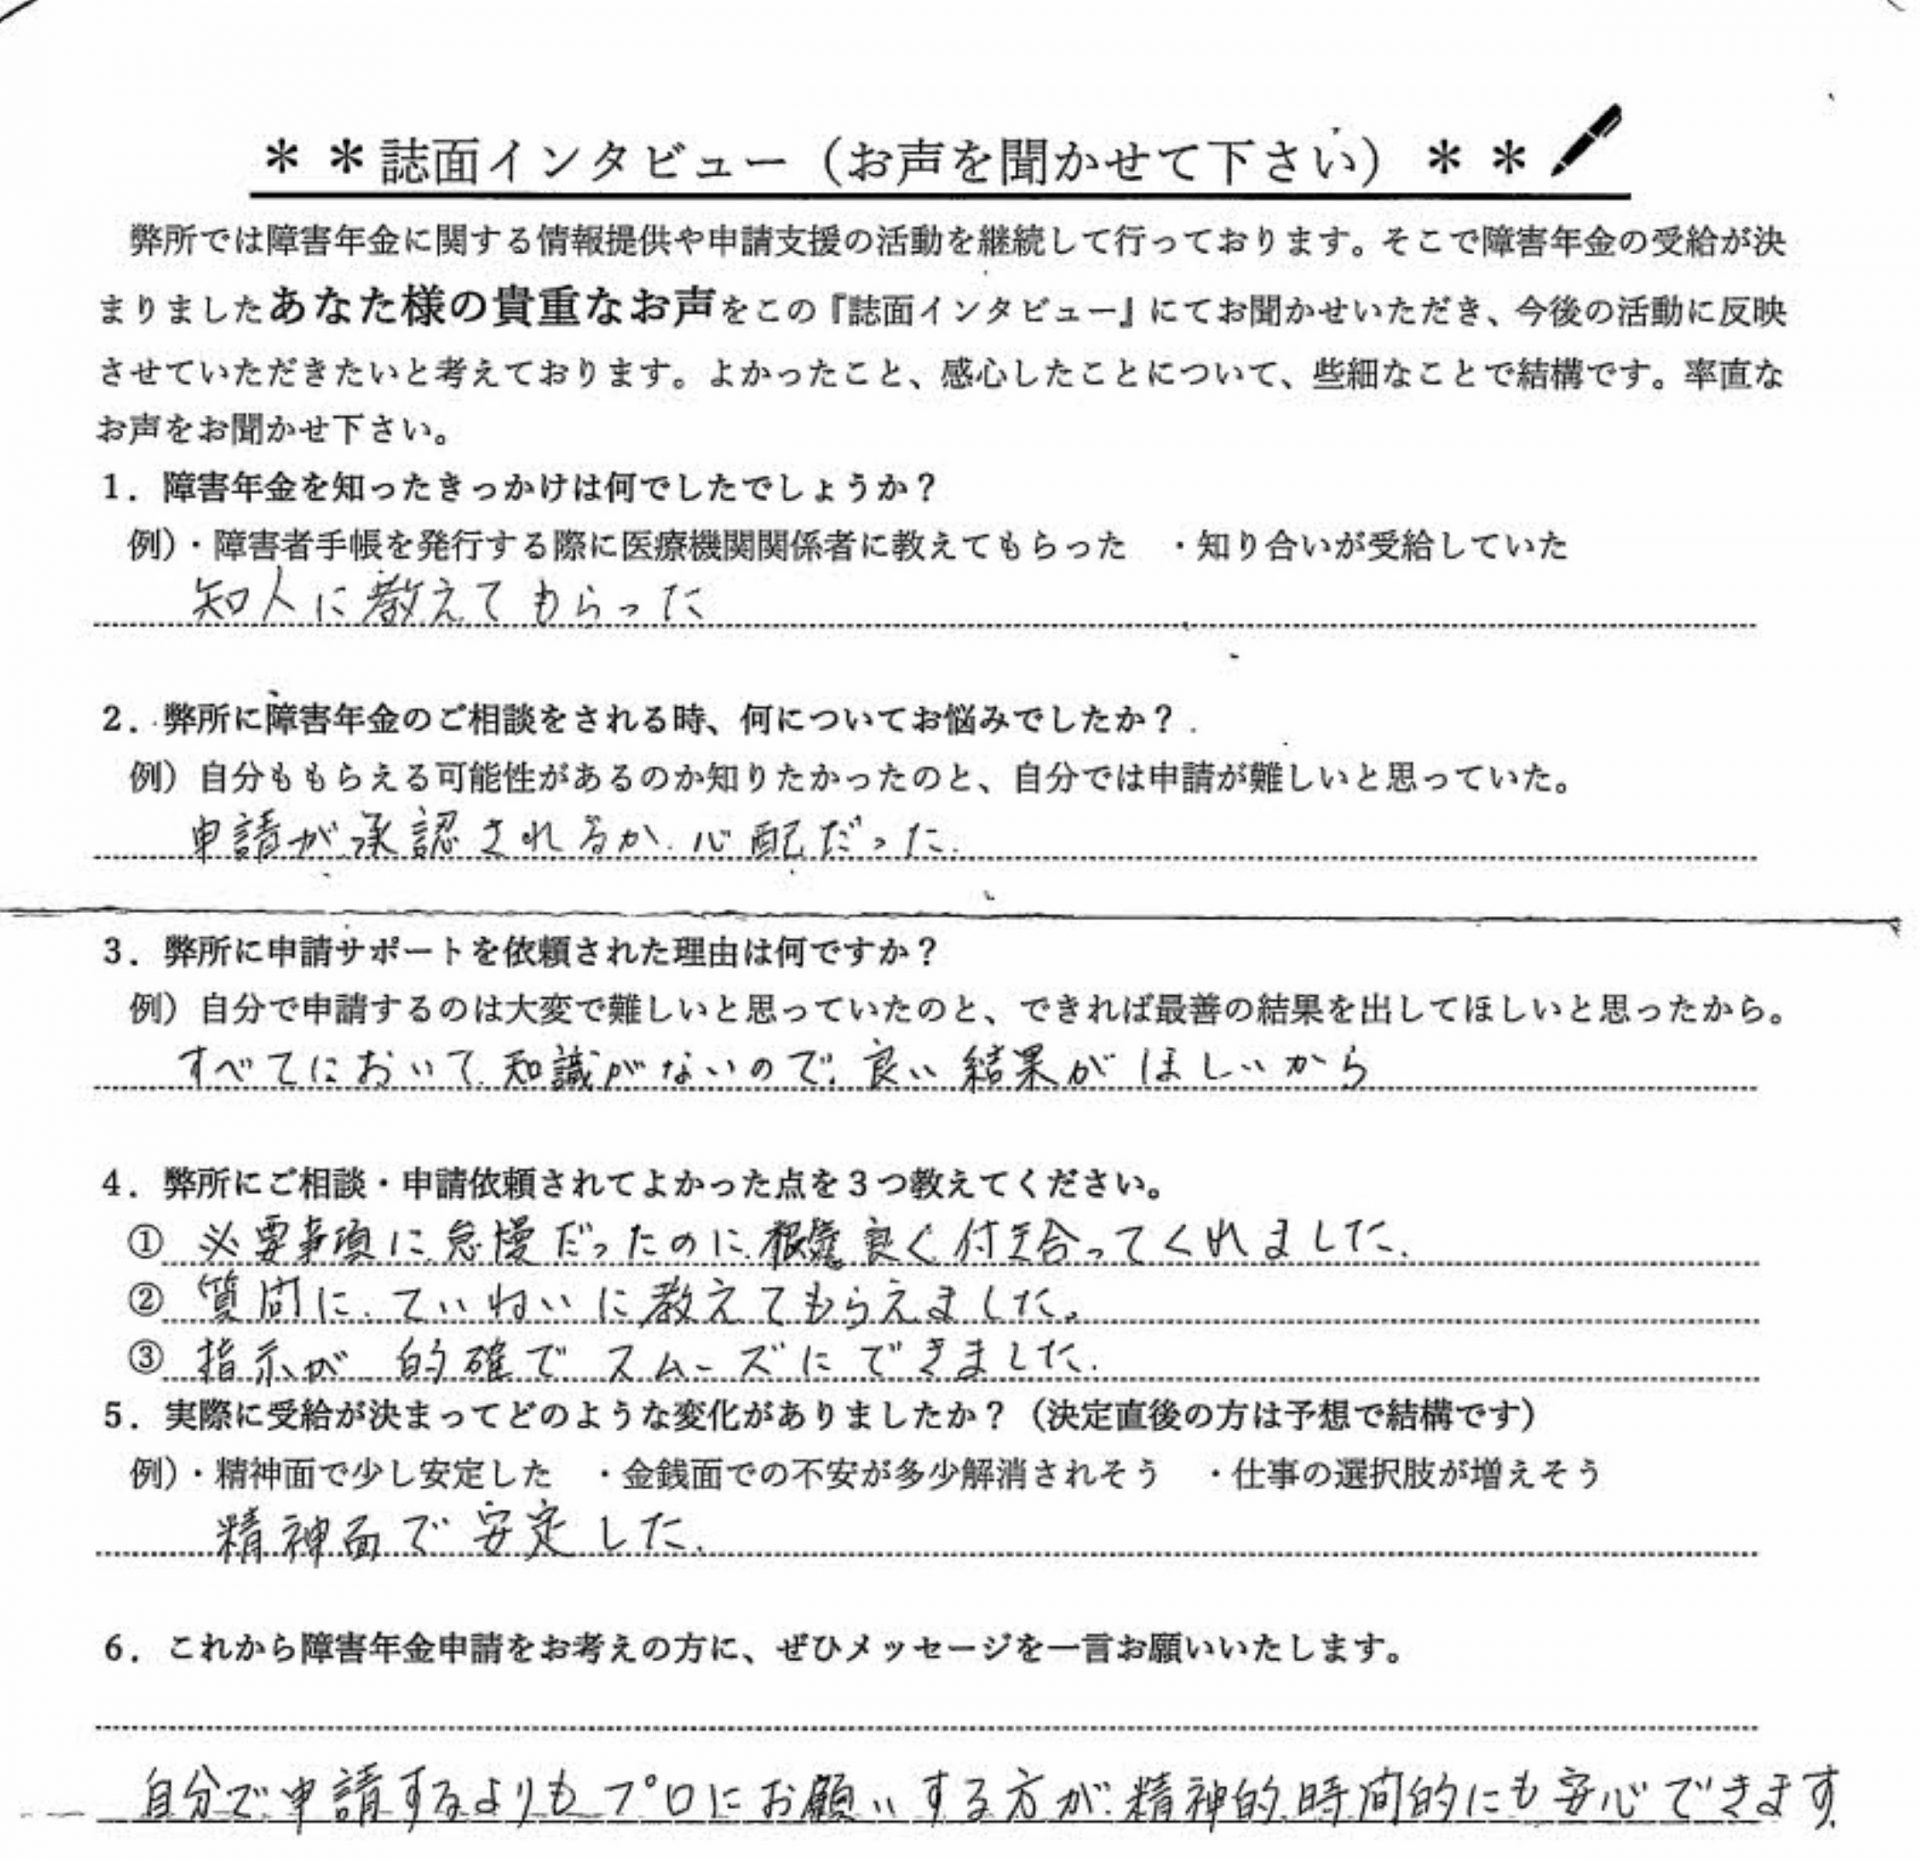 ＊＊誌面インタビュー（お声を聞かせて下さい）＊＊
弊所では障害年金に関する情報提供や申請支援の活動を継続して行っております。そこで障害年金の受給が決
まりましたあなた様の貴重なお声をこの『誌面インタビュー』にてお聞かせいただき、今後の活動に反映
させていただきたいと考えております。よかったこと、感心したことについて、些細なことで結構です。率直な
お声をお聞かせ下さい。
1．障害年金を知ったきっかけは何でしたでしょうか？
例）・障害者手帳を発行する際に医療機関関係者に教えてもらった　・知り合いが受給していた
知人に教えてもらった
2．弊所に障害年金のご相談をされる時、何についてお悩みでしたか？
例）自分ももらえる可能性があるのか知りたかったのと、自分では申請が難しいと思っていた。
申請が承認されるか、心配だった。
3．弊所に申請サポートを依頼された理由は何ですか？
例）自分で申請するのは大変で難しいと思っていたのと、できれば最善の結果を出してほしいと思ったから。
すべてにおいて知識がないので、良い結果がほしいから
4．弊所にご相談・申請依頼されてよかった点を３つ教えてください。
① 必要事項に怠慢だったのに、根気良く付き合ってくれました。
② 質問に、ていねいに教えてもらえました。
③ 指示が的確でスムーズにできました。
5．実際に受給が決まってどのような変化がありましたか？（決定直後の方は予想で結構です）
例）・精神面で少し安定した　・金銭面での不安が多少解消されそう　・仕事の選択肢が増えそう
精神面で安定した。
6．これから障害年金申請をお考えの方に、ぜひメッセージを一言お願いいたします。
自分で申請するよりもプロにお願いする方が、精神的、時間的にも安心できます。